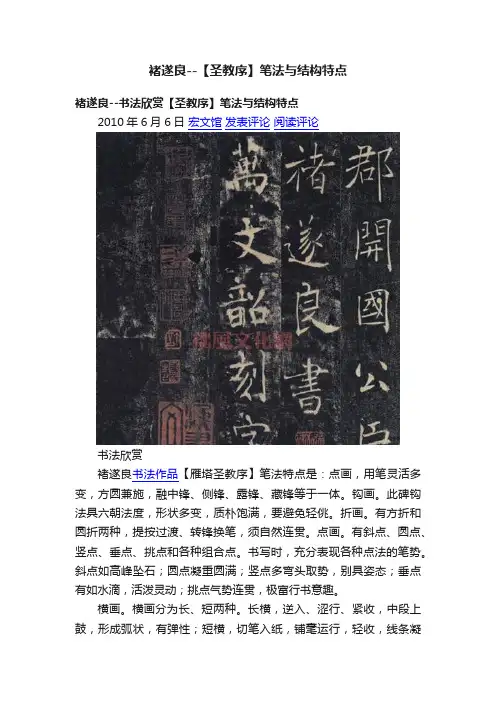 褚遂良--【圣教序】笔法与结构特点
褚遂良--书法欣赏【圣教序】笔法与结构特点
2010年6月6日 宏文馆 发表评论 阅读评论
郡開國公臣
褚遂良書
萬文韶刻字
书法欣赏
褚遂良书法作品【雁塔圣教序】笔法特点是：点画，用笔灵活多
变，方圆兼施，融中锋、侧锋、露锋、藏锋等于一体。钩画。此碑钩
法具六朝法度，形状多变，质朴饱满，要避免轻佻。折画。有方折和
圆折两种，提按过渡、转锋换笔，须自然连贯。点画。有斜点、圆点、
竖点、垂点、挑点和各种组合点。书写时，充分表现各种点法的笔势。
斜点如高峰坠石；圆点凝重圆满；竖点多弯头取势，别具姿态；垂点
有如水滴，活泼灵动；挑点气势连贯，极富行书意趣。
横画。横画分为长、短两种。长横，逆入、涩行、紧收，中段上
鼓，形成弧状，有弹性；短横，切笔入纸，铺毫运行，轻收，线条凝